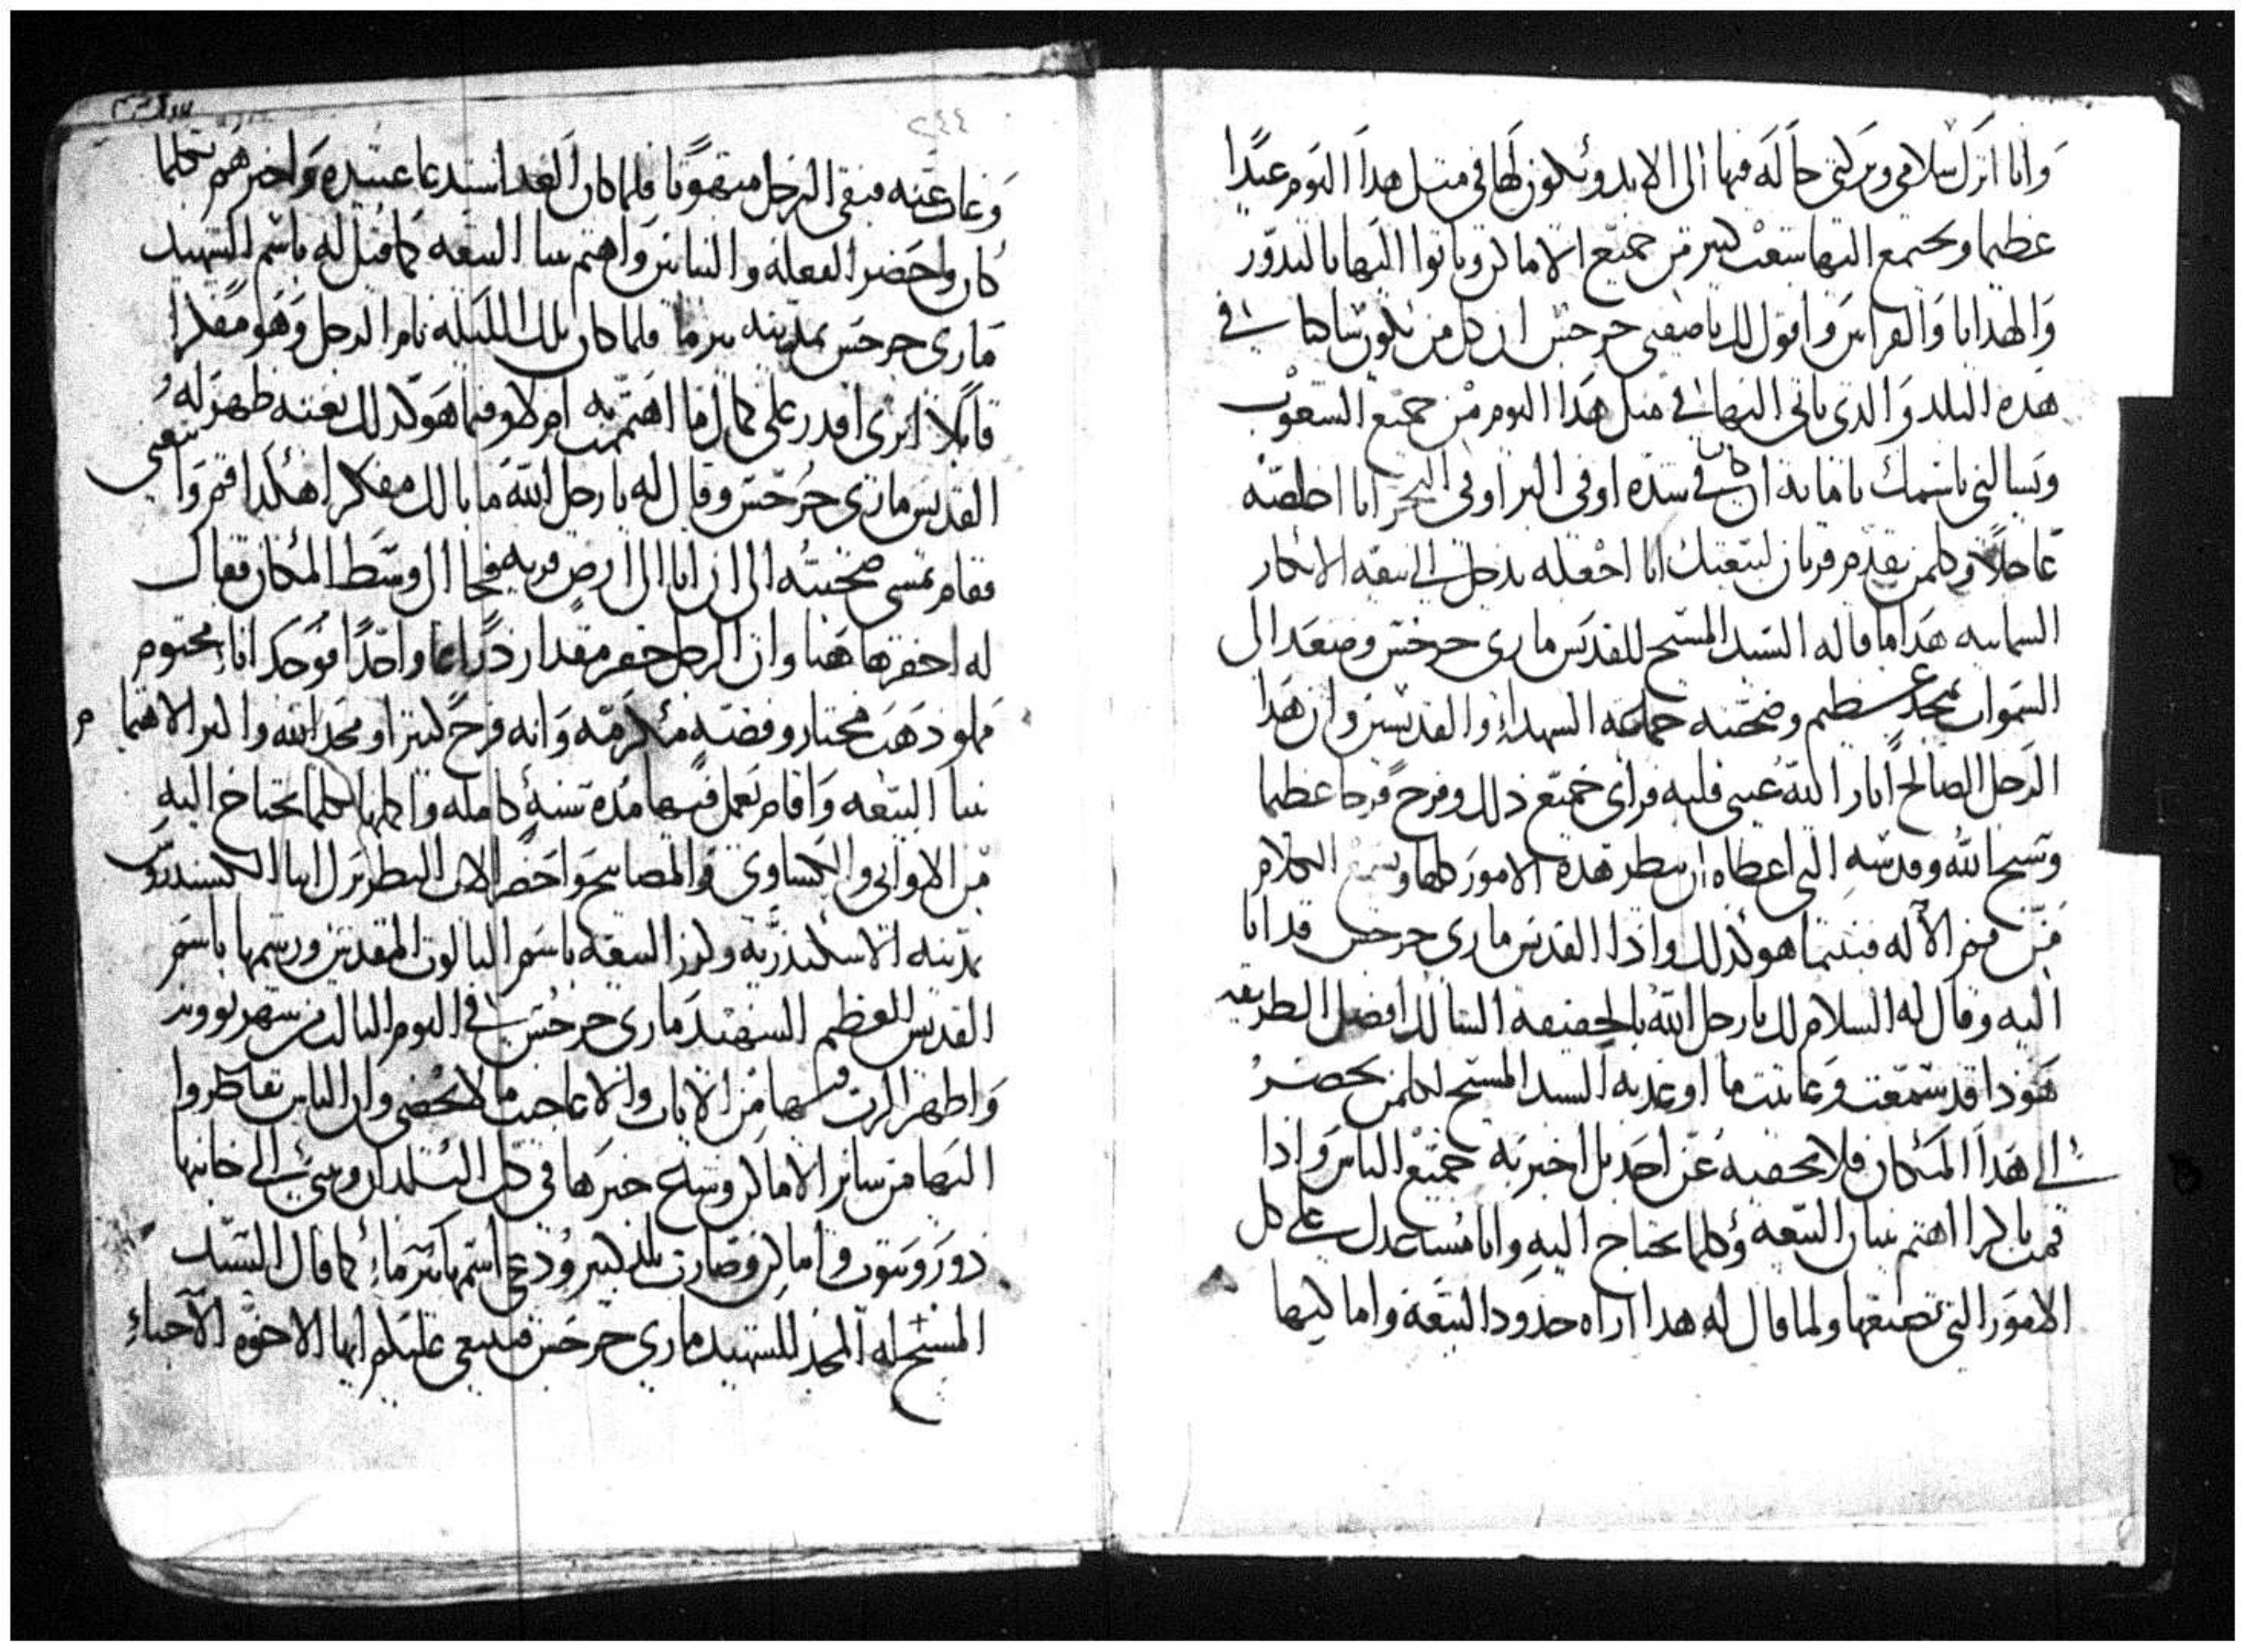 وانا انزل سلامي وبركتي حاله فيها الى الابد ويكون لها في مثل هذا اليوم عيدا
عظيما ويجتمع اليها شعب كبير من جميع الاماكن وياتوا اليها بالندور
والهدايا والقرابين واقول لك ياصفيي جرجس ان كل من يكون ساكنا في
هذه البلد والذي ياتي اليها في مثل هذا اليوم من جميع الشعوب
ويسالني باسمك يامارى ان كان في شده او في البر او في البحر انا اخلصه
عاجلا وكلمن يقدم قربان لبيعتك انا اجعله يدخل الي بيعه الابكار
السمايیه هذا ما قاله السيد المسيح للقديس ماري جرجس وصعد الى
السموات بمجد عظيم وصحبته جماعه الشهداء والقديسين وان هذا
الرجل الصالح انار الله عيني قلبه فراى جميع ذلك وفرح فرحا عظيما
وسبح الله وقدسه التي اعطاه ان ينظر هذه الامور كلها ويسمع الكلام
من فم الاله فبينما هو كذلك واذا القديس ماري جرجس قد اتا
اليه وقال له السلام لك يارجل الله بالحقيقه السالك افضل الطريقه
هوذا قد سمعت وعاينت ما اوعد به السيد المسيح لكلمن يحضر
الى هذا المكان فلا تخفيه عن احد بل اخبر به جميع الناس واذا
قمت باكرا اهتم ببنيان البيعه وكلما تحتاج اليه وانا مساعدك علي كل
الامور التي تصنعها ولما قال له هذا اراه حدود البيعه واماكنها
٢٤٤
وغاب عنه فبقى الرجل مبهوتا فلما كان الغد استدعا عبيده واخبرهم بكلما
كان واحضر الفعله والبنايين واهتم ببنا البيعه كما قيل له باسم الشهيد
ماري جرجس بمدينه بيرما فلما كان تلك الليله نام الرجل وهو مفكرا
قايلا اترى اقدر على كمال ما اهتممت به ام لا وفيما هو كذلك بعينه ظهر له
القديس ماري جرجس وقال له يا رجل الله ما بالك مفكرا هكذا قم واتبعني
فقام يمشي صحبته الى ان اتا الى ارض قريه فجا الى وسط المكان فقال
له احفر هاهنا وان الرجل حفر مقدار ذراعا واحدا فوجد اناء مختوم
مملو ذهب مختار وفضه مكرمه وانه فرح كثيرا ومجد الله واكثر الاهتمام
ببنا البيعه واقام يعمل فيها مده سنه كامله واكملها بكلما تحتاج اليه
من الاواني والكساوي والمصابيح واحضر الاب البطريرك انبا الكسندروس
بمدينه الاسكندريه وكرز البيعه باسم الثالوت المقدس ورسمها باسم
القديس العظيم الشهيد ماري جرجس في اليوم الثالث من شهر بوونه
واظهر الرب فيها من الايات والاعاجيب ما لا يحصى وان الناس تقاطروا
اليها من ساير الاماكن وشاع خبرها في كل البلدان وبني الى جانبها
دور وبيوت واماكن وصارت بلد كبير ودعي اسمها بيرماء كما قال السيد
المسيح له المجد للشهيد ماري جرجس فينبغي عليكم ايها الاخوه الاحباء